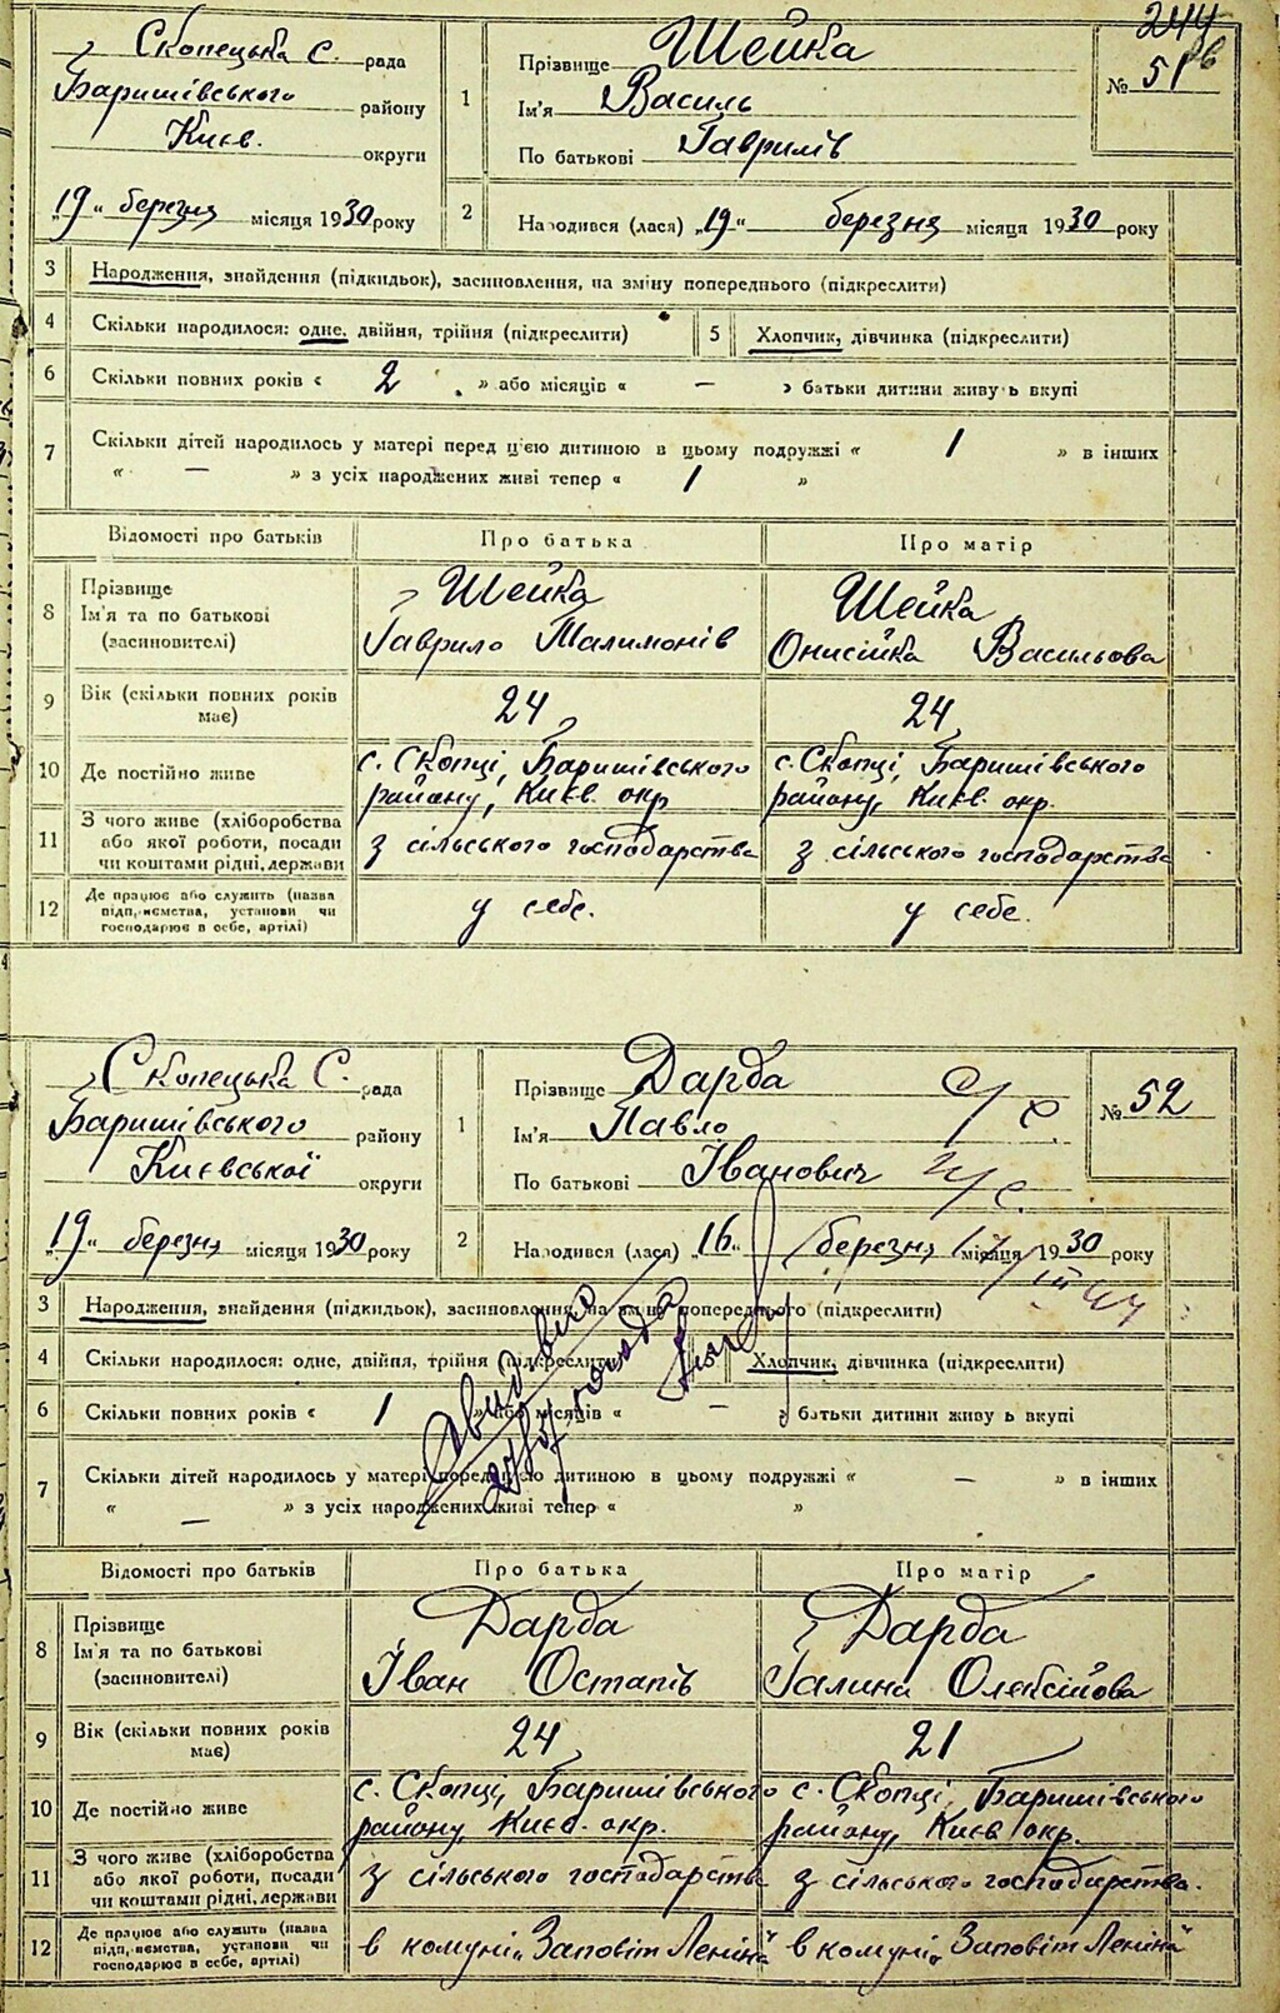 244
Скопецька С. рада
Баришівського району
Києв. округи
"19" березня місяця 1930 року
1 Прізвище Шейка
Ім'я Василь
По батькові Гаврилів
№ 51
2 Народився (лася) "19" березня місяця 1930 року
3 Народження, знайдення (підкидьок), засиновлення, на зміну попереднього (підкреслити)
4 Скільки народилося: одне, двійня, трійня (підкреслити) 5 Хлопчик, дівчинка (підкреслити)
6 Скільки повних років « 2 » або місяців « — » батьки дитини живуть вкупі
7 Скільки дітей народилось у матері перед цією дитиною в цьому подружжі « 1 » в інших
« — » з усіх народжених живі тепер « 1 »
Відомості про батьків Про батька Про матір
8 Прізвище Ім'я та по батькові (засиновителі) Шейка Шейка
Гаврило Малимонів Онисійка Васильова
9 Вік (скільки повних років має) 24 24
10 Де постійно живе с. Скопці, Баришівського с. Скопці, Баришівського
району, Києв. окр району, Києв. окр.
11 З чого живе (хліборобства або якої роботи, посади чи коштами рідні, держави з сільського господарства з сільського господарства
12 Де працює або служить (назва підприємства, установи чи господарює в себе, артілі) у себе. у себе.
Скопецька С. рада
Баришівського району
Києвської округи
"19" березня місяця 1930 року
1 Прізвище Дарба
Ім'я Павло
По батькові Іванович
№ 52
2 Народився (лася) "16" березня місяця 1930 року
3 Народження, знайдення (підкидьок), засиновлення, на зміну попереднього (підкреслити)
4 Скільки народилося: одне, двійня, трійня (підкреслити) Хлопчик, дівчинка (підкреслити)
6 Скільки повних років « 1 » або місяців « — » батьки дитини живуть вкупі
7 Скільки дітей народилось у матері перед цією дитиною в цьому подружжі « — » в інших
« — » з усіх народжених живі тепер « »
Відомості про батьків Про батька Про матір
8 Прізвище Ім'я та по батькові (засиновителі) Дарба Дарба
Іван Остапів Галина Олексійова
9 Вік (скільки повних років має) 24 21
10 Де постійно живе с. Скопці, Баришівського с. Скопці, Баришівського
району, Києв. окр. району, Києв окр.
11 З чого живе (хліборобства або якої роботи, посади чи коштами рідні, держави з сільського господарства з сільського господарства.
12 Де працює або служить (назва підприємства, установи чи господарює в себе, артілі) в комуні „Заповіт Леніна" в комуні „Заповіт Леніна"